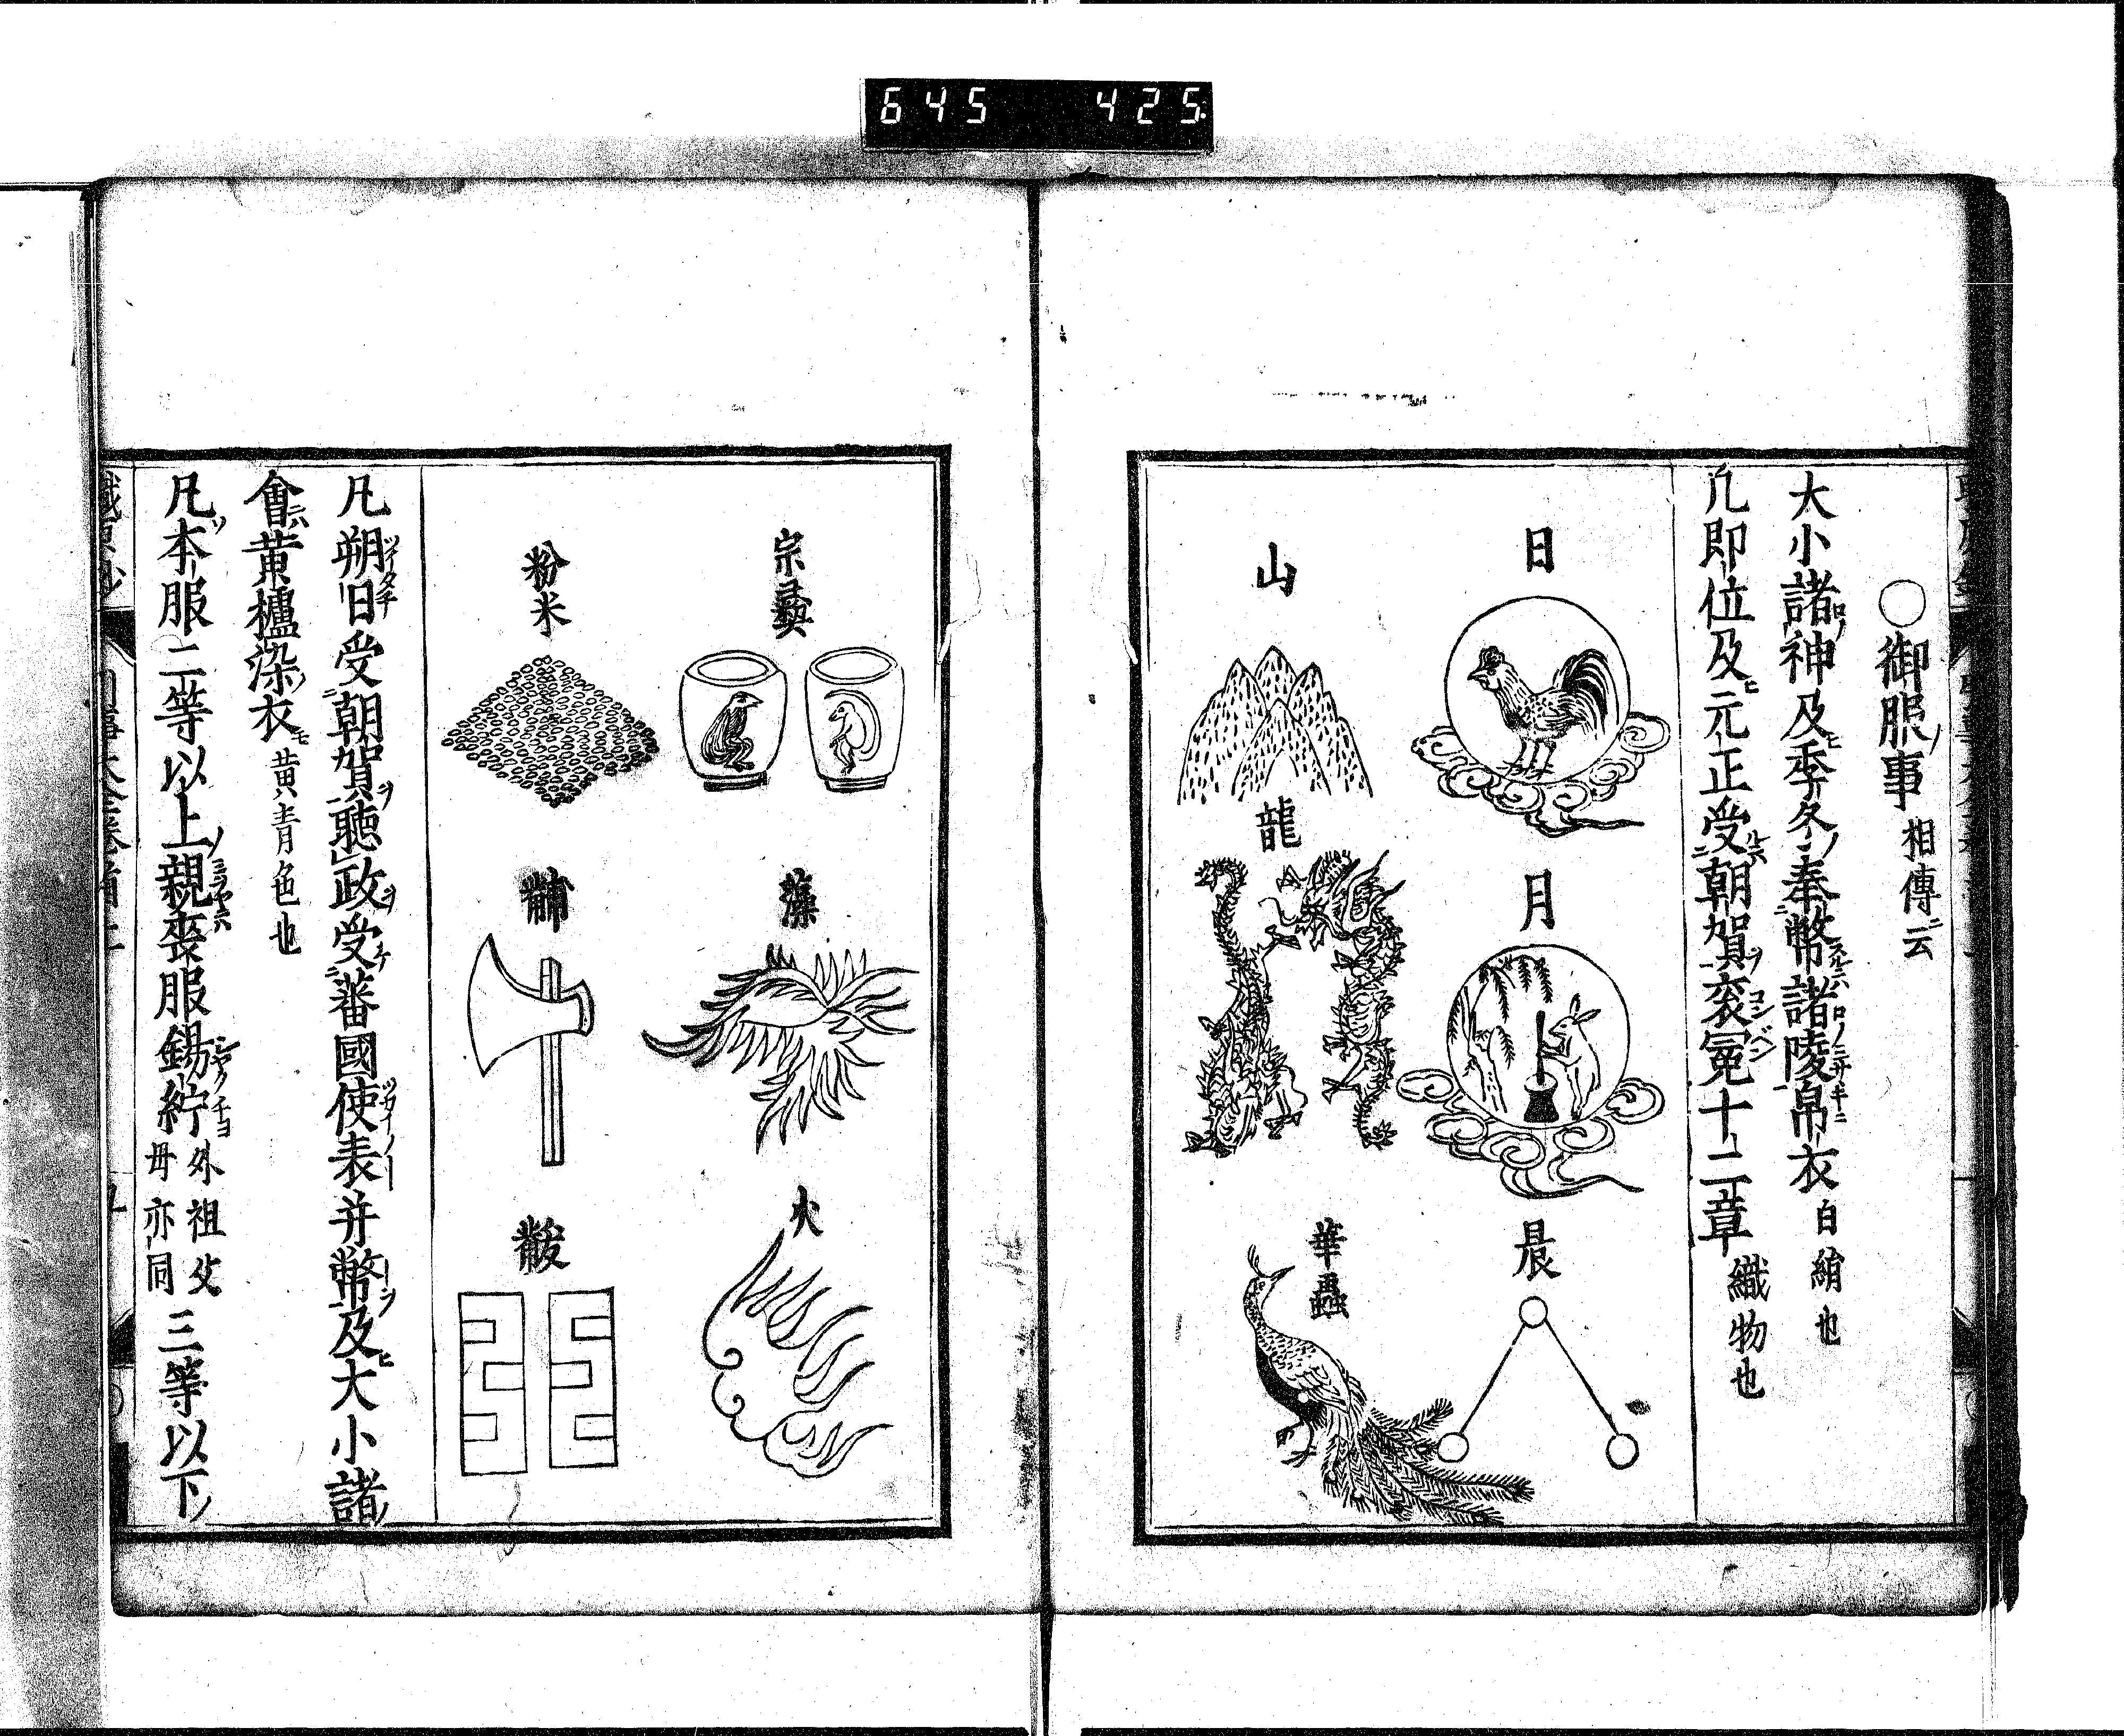 645 425
○御服ノ事 相傳ニ云
大小諸神及季冬奉幣諸陵帛衣 白絹也
凡即位及元正受朝賀袞冕十二章 織物也
日
月
辰
山
龍
華蟲
宗彝
藻
火
粉米
黼
黻
凡朔旦受朝賀聴政受蕃國使表并幣及大小諸
會黄櫨染衣 黄青色也
凡本服二等以上親喪服錫紵 外祖父
母亦同 三等以下